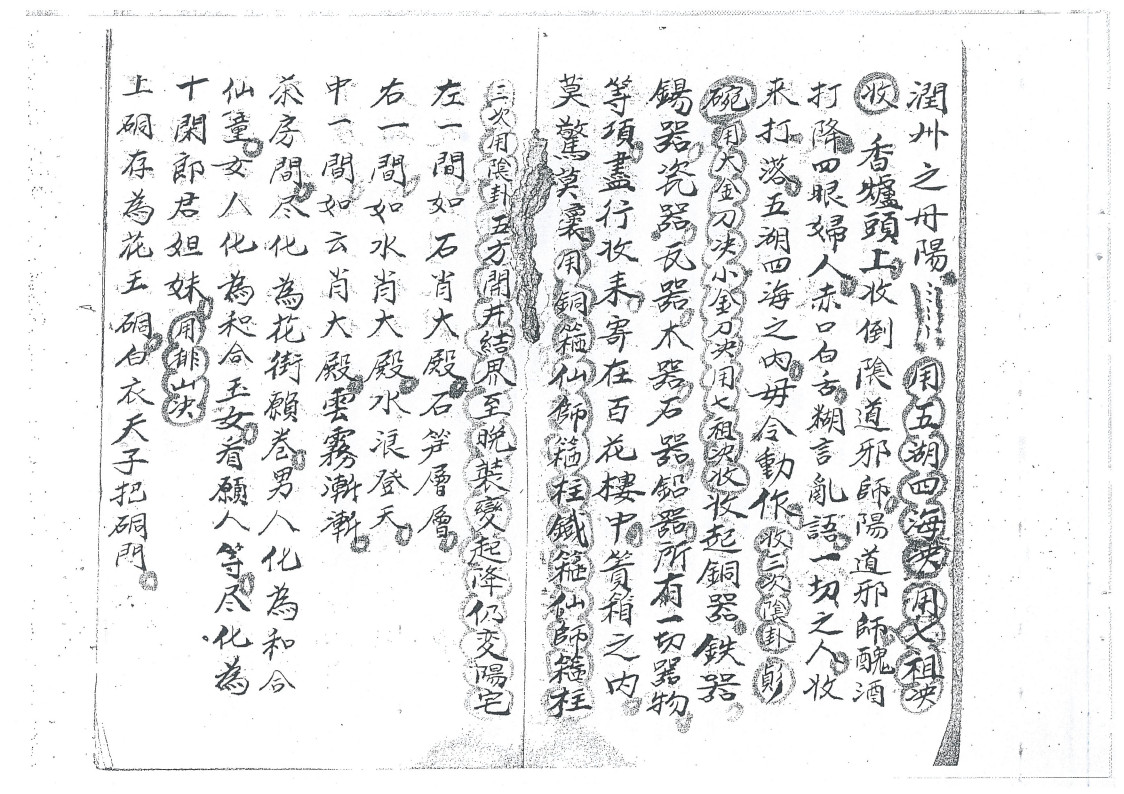 潤州之丹陽用五湖四海决用七祖决
收香爐頭上收倒陰道邪師陽道邪師醜酒
打降四眼婦人赤口白舌糊言亂語一切之人收
来打落五湖四海之內毋令動作收三次陰卦
碗用大金刀决小金刀决用七祖决收收起銅器鉄器
錫器瓷器瓦器木器石器鉛器所有一切器物
等項盡行收来寄在百花樓中箱之内
莫驚莫用銅箍仙師箍柱鐵箍仙師箍柱
三次用陰卦五方開井結界至晚裝變起降仍变陽宅
左一間如石肖大殿石笋層層
右一間如水肖大殿水浪登天
中一間如云肖大殿雲霧漸漸
茶房間尽化為花街願巻男人化為和合
仙童女人化為和合玉女有願人等尽化為
十閑郎君妲妹用排山决
上硐存為花王硐白衣天子把硐門